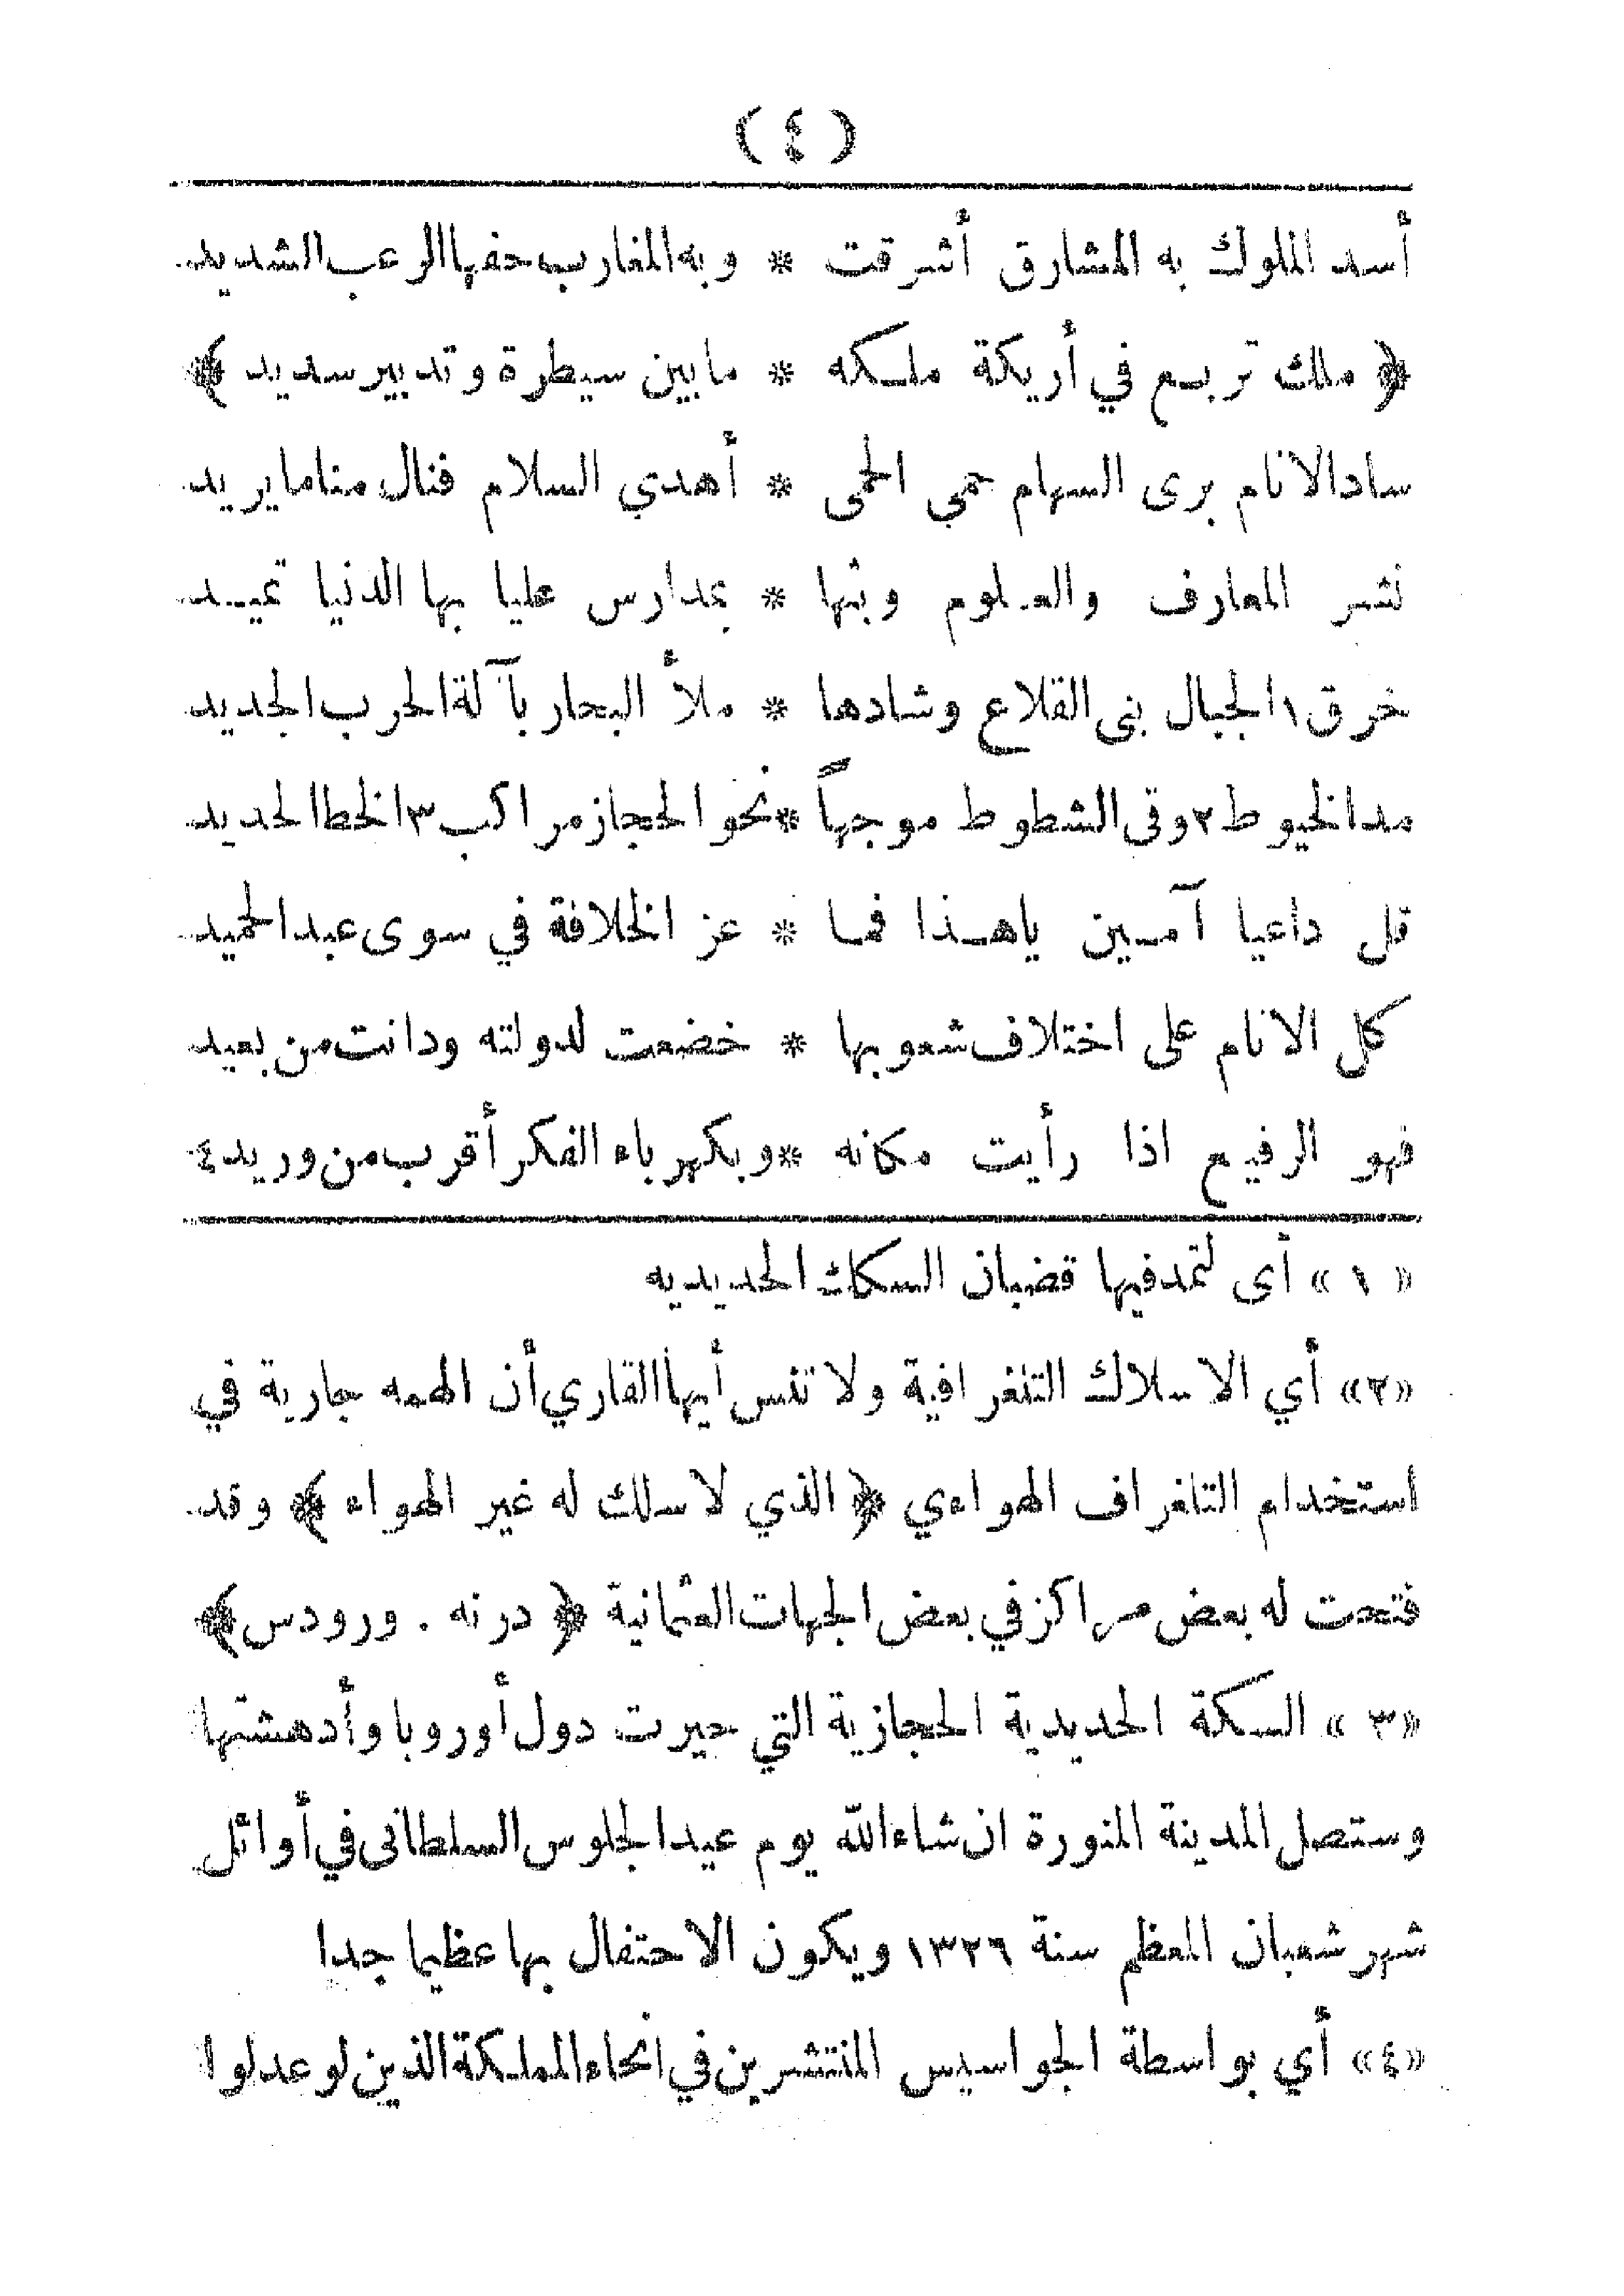 ( ٤ )
أسد الملوك به المشارق أشرقت * وبه المغارب حفها الرعب الشديد
﴿ ملك تربع في أريكة ملكه * مابين سيطرة وتدبير سديد ﴾
ساد الانام برى السهام حمي الحمى * أهدي السلام فنال منا مايريد
نشر المعارف والعلوم وبثها * بمدارس عليا بها الدنيا تميد
خرق ١ الجبال بنى القلاع وشادها * ملأ البحار بآلة الحرب الجديد
مد الخيوط ٢ وقى الشطوط موجهاً * نحو الحجاز مراكب ٣ الخط الحديد
قل داعيا آمين ياهذا فما * عز الخلافة في سوى عبد الحميد
كل الانام على اختلاف شعوبها * خضعت لدولته ودانت من بعيد
فهو الرفيع اذا رأيت مكانه * وبكهرباء الفكر أقرب من وريد ٤
« ١ » أى لتمد فيها قضبان السكك الحديديه
«٢» أي الاسلاك التلغرافية ولا تنس أيها القاري أن الهمه جارية في
استخدام التلغراف الهواءي ﴿ الذي لا سلك له غير الهواء ﴾ وقد
فتحت له بعض مراكز في بعض الجهات العثمانية ﴿ درنه . ورودس ﴾
«٣ » السكة الحديدية الحجازية التي حيرت دول أوروبا وأدهشتها
وستصل المدينة المنورة ان شاء الله يوم عيد الجلوس السلطانى في أوائل
شهر شعبان المعظم سنة ١٣٢٦ ويكون الاحتفال بها عظيما جدا
«٤» أي بواسطة الجواسيس المنتشرين في انحاء المملكة الذين لو عدلوا